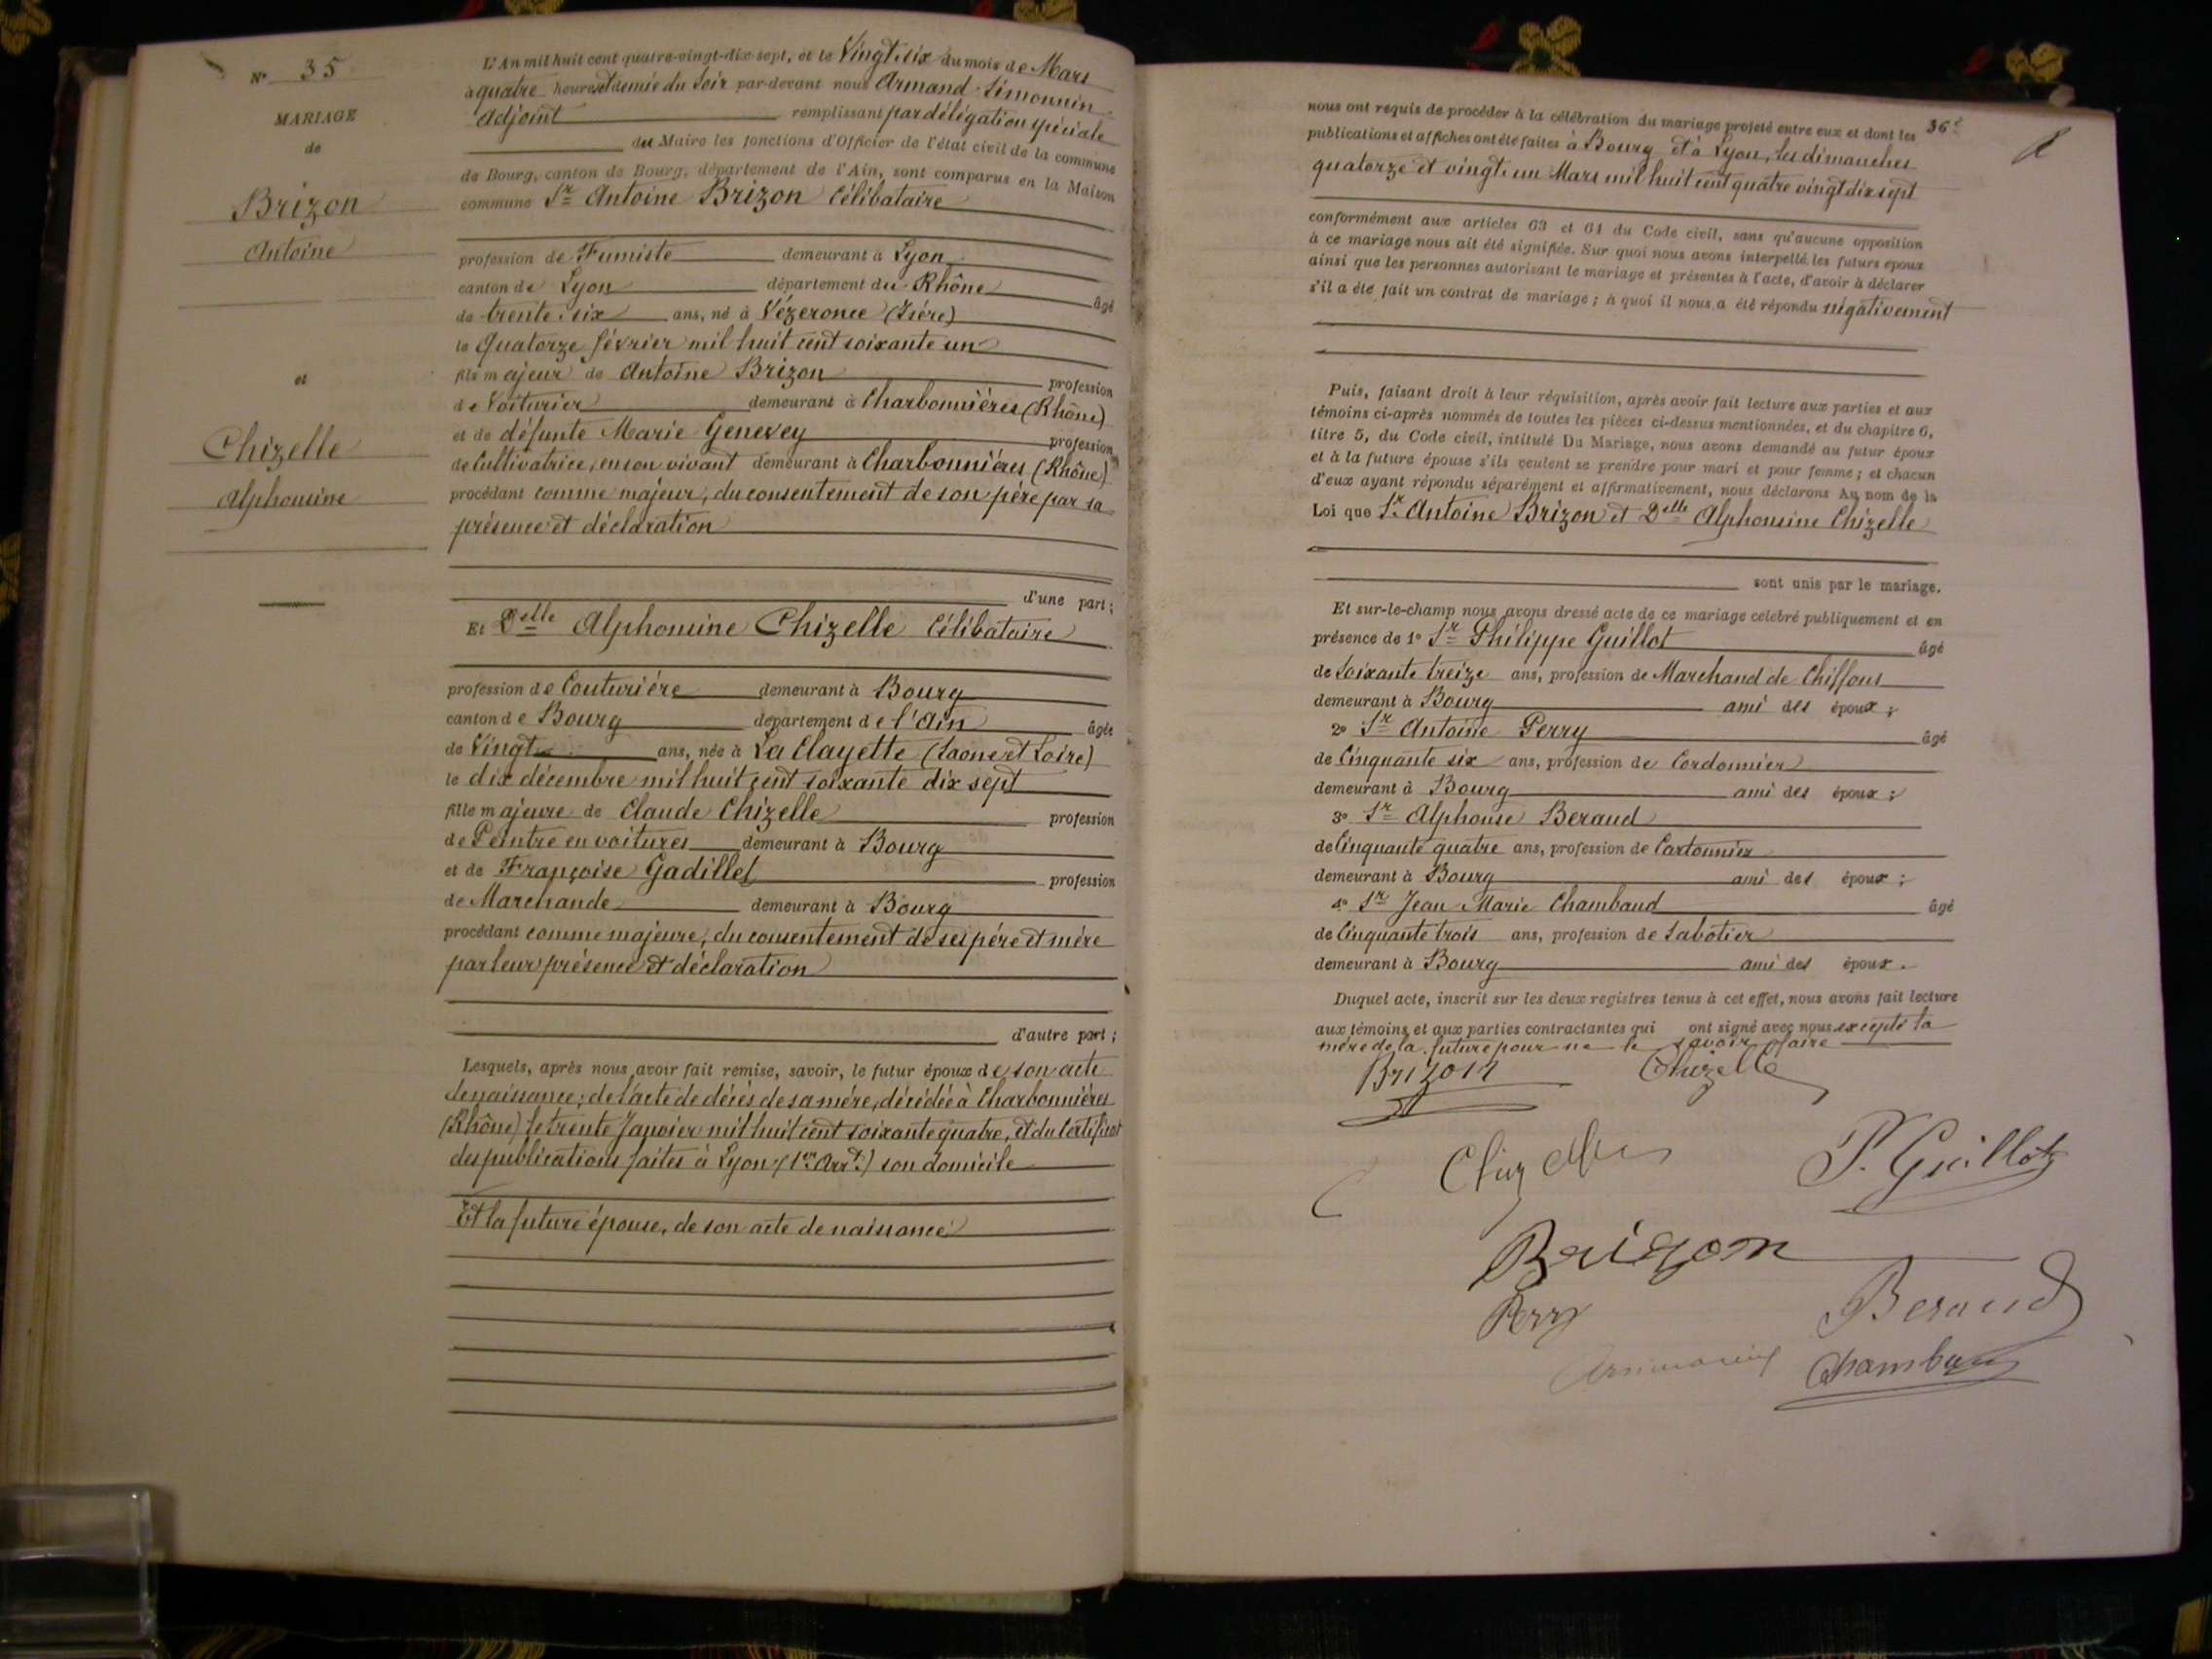 N° 35
MARIAGE
de
Brizon
Antoine
et
Chizelle
Alphonsine
L'An mil huit cent quatre-vingt-dix-sept, et le Vingt-six du mois de Mars
à quatre heures et demie du Soir par-devant nous Armand Simonnin
Adjoint remplissant par délégation spéciale
du Maire les fonctions d'Officier de l'état civil de la commune
de Bourg, canton de Bourg, département de l'Ain, sont comparus en la Maison
commune Sr Antoine Brizon Célibataire
profession de Fumiste demeurant à Lyon
canton de Lyon département du Rhône âgé
de trente-six ans, né à Vézeronce (Isère)
le Quatorze février mil huit cent soixante un
fils majeur de Antoine Brizon profession
de Voiturier demeurant à Charbonnières (Rhône)
et de défunte Marie Genevey profession
de Cultivatrice, en son vivant demeurant à Charbonnières (Rhône)
procédant comme majeur, du consentement de son père par sa
présence et déclaration
d'une part;
Et Delle Alphonsine Chizelle Célibataire
profession de Couturière demeurant à Bourg
canton de Bourg département de l'Ain âgée
de Vingt ans, née à La Clayette (Saone et Loire)
le dix décembre mil huit cent soixante dix sept
fille majeure de Claude Chizelle profession
de Peintre en voitures demeurant à Bourg
et de Françoise Gadillet profession
de Marchande demeurant à Bourg
procédant comme majeure, du consentement de ses père et mère
par leur présence et déclaration
d'autre part;
Lesquels, après nous avoir fait remise, savoir, le futur époux de son acte
de naissance; de l'acte de décès de sa mère, décédée à Charbonnières
(Rhône) le trente Janvier mil huit cent soixante quatre, et du Certificat
des publications faites à Lyon (1er Arrt.) son domicile
Et la future épouse, de son acte de naissance
36e
nous ont requis de procéder à la célébration du mariage projeté entre eux et dont les
publications et affiches ont été faites à Bourg et à Lyon, les dimanches
quatorze et vingt-un Mars mil huit cent quatre vingt dix sept
conformément aux articles 63 et 64 du Code civil, sans qu'aucune opposition
à ce mariage nous ait été signifiée. Sur quoi nous avons interpellé les futurs époux
ainsi que les personnes autorisant le mariage et présentes à l'acte, d'avoir à déclarer
s'il a été fait un contrat de mariage; à quoi il nous a été répondu négativement
Puis, faisant droit à leur réquisition, après avoir fait lecture aux parties et aux
témoins ci-après nommés de toutes les pièces ci-dessus mentionnées, et du chapitre 6,
titre 5, du Code civil, intitulé Du Mariage, nous avons demandé au futur époux
et à la future épouse s'ils veulent se prendre pour mari et pour femme; et chacun
d'eux ayant répondu séparément et affirmativement, nous déclarons Au nom de la
Loi que Sr Antoine Brizon et Delle Alphonsine Chizelle
sont unis par le mariage.
Et sur-le-champ nous avons dressé acte de ce mariage célébré publiquement et en
présence de 1° Sr Philippe Guillot âgé
de Soixante treize ans, profession de Marchand de Chiffons
demeurant à Bourg ami des époux;
2° Sr Antoine Perry âgé
de Cinquante six ans, profession de Cordonnier
demeurant à Bourg ami des époux;
3° Sr Alphonse Beraud
de Cinquante quatre ans, profession de Cartonnier
demeurant à Bourg ami des époux;
4° Sr Jean Marie Chambaud âgé
de Cinquante trois ans, profession de Sabotier
demeurant à Bourg ami des époux.
Duquel acte, inscrit sur les deux registres tenus à cet effet, nous avons fait lecture
aux témoins et aux parties contractantes qui ont signé avec nous excepté la
mère de la future pour ne le savoir faire
Brizon Chizelle
P. Guillot
Brizon
Perry Beraud
Chambaud